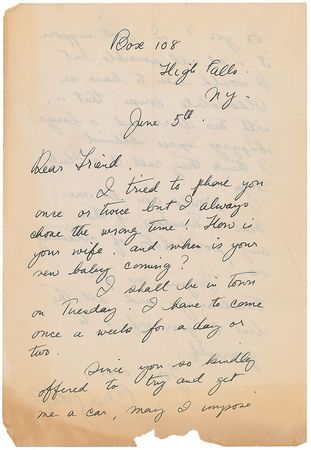 Box 108
High Falls.
NY
June 5th.
Dear Friend.
I tried to phone you
once or twice but I always
chose the wrong time! How is
your wife. and when is your
new baby coming?
I shall be in town
on Tuesday. I have to come
once a weeks for a day or
two.
Since you so kindly
offered to try and get
me a car, may I impose